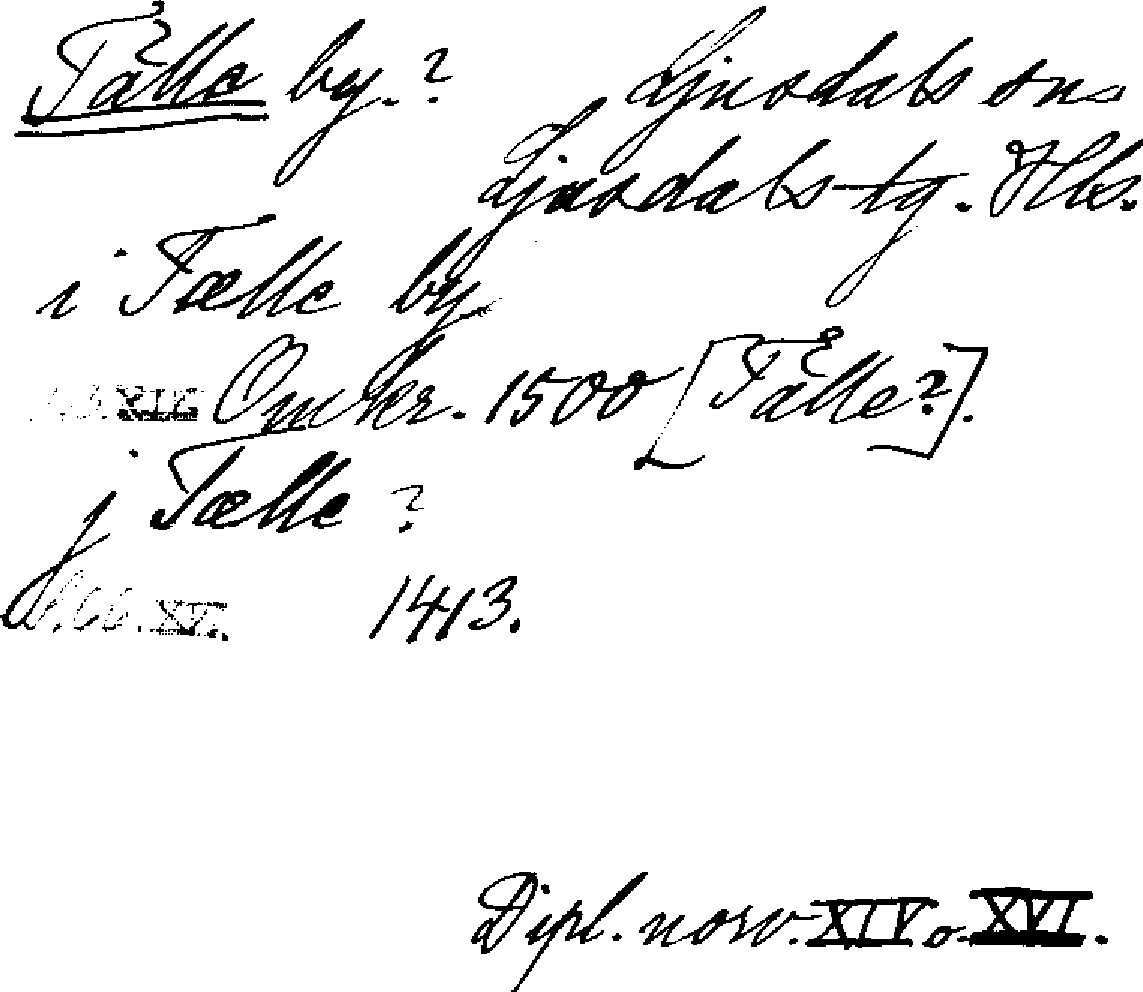 Tålle by.? Ljusdals sn
Ljusdals tg. Hls.
i Tælle by
XIV Omkr. 1500 [Tålle?].
j Tælle ?
XVI. 1413.
Dipl. norv. XIV o. XVI.